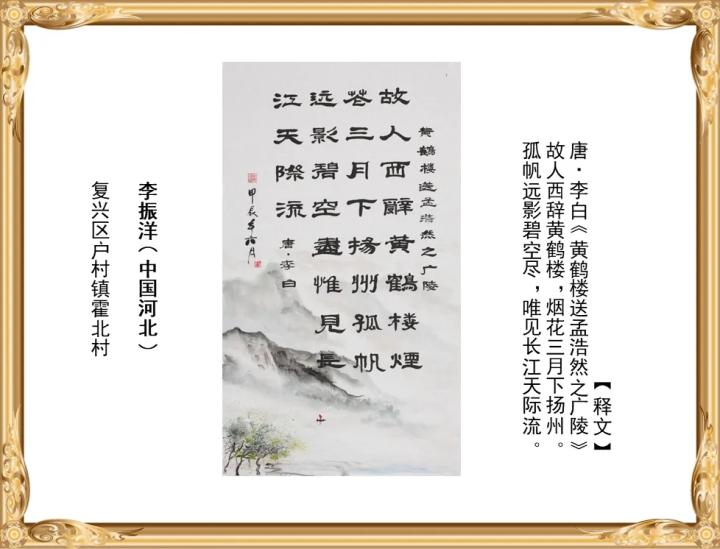 【释文】
唐·李白《黄鹤楼送孟浩然之广陵》
故人西辞黄鹤楼,烟花三月下扬州。
孤帆远影碧空尽,唯见长江天际流。
黄鶴樓送孟浩然之广陵
故人西辭黄鶴楼煙
花三月下揚州孤帆
远影碧空盡惟見長
江天際流
唐·李白
甲辰年拾月
李振洋(中国河北)
复兴区户村镇霍北村